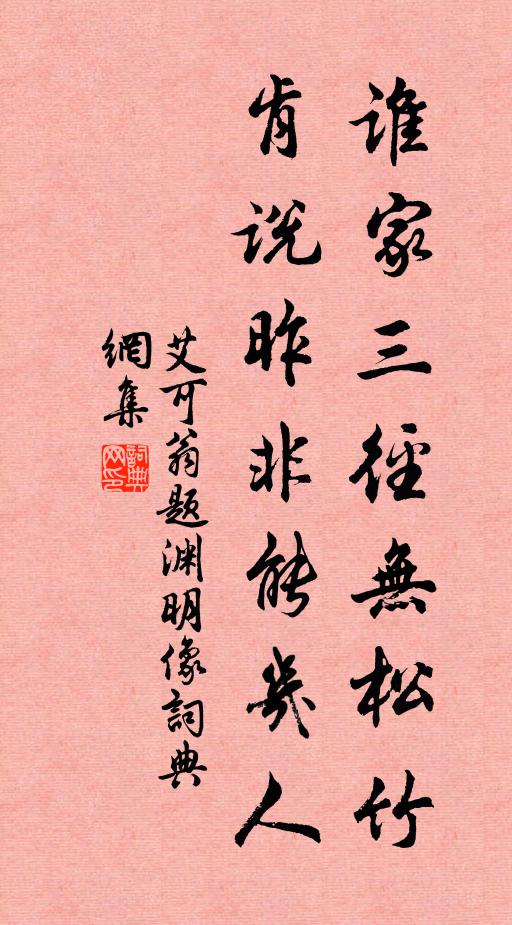 誰家三徑無松竹
肯説昨非能幾人
艾可翁題淵明像詞典
網集
詞典
网印